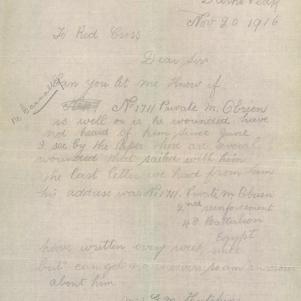 Nov 20 1916
To Red Cross
Dear Sir
Can you let me know if
No 1711 Private M. OBrien
is well or is he wounded have
not heard of him since June
I see by the Paper there are several
wounded that sailed with him
the last letter we had from him
his address was No 1711. Private M OBrien
2nd reinforcement
Battalion
Egypt
have written every week
but can get no answer
about him